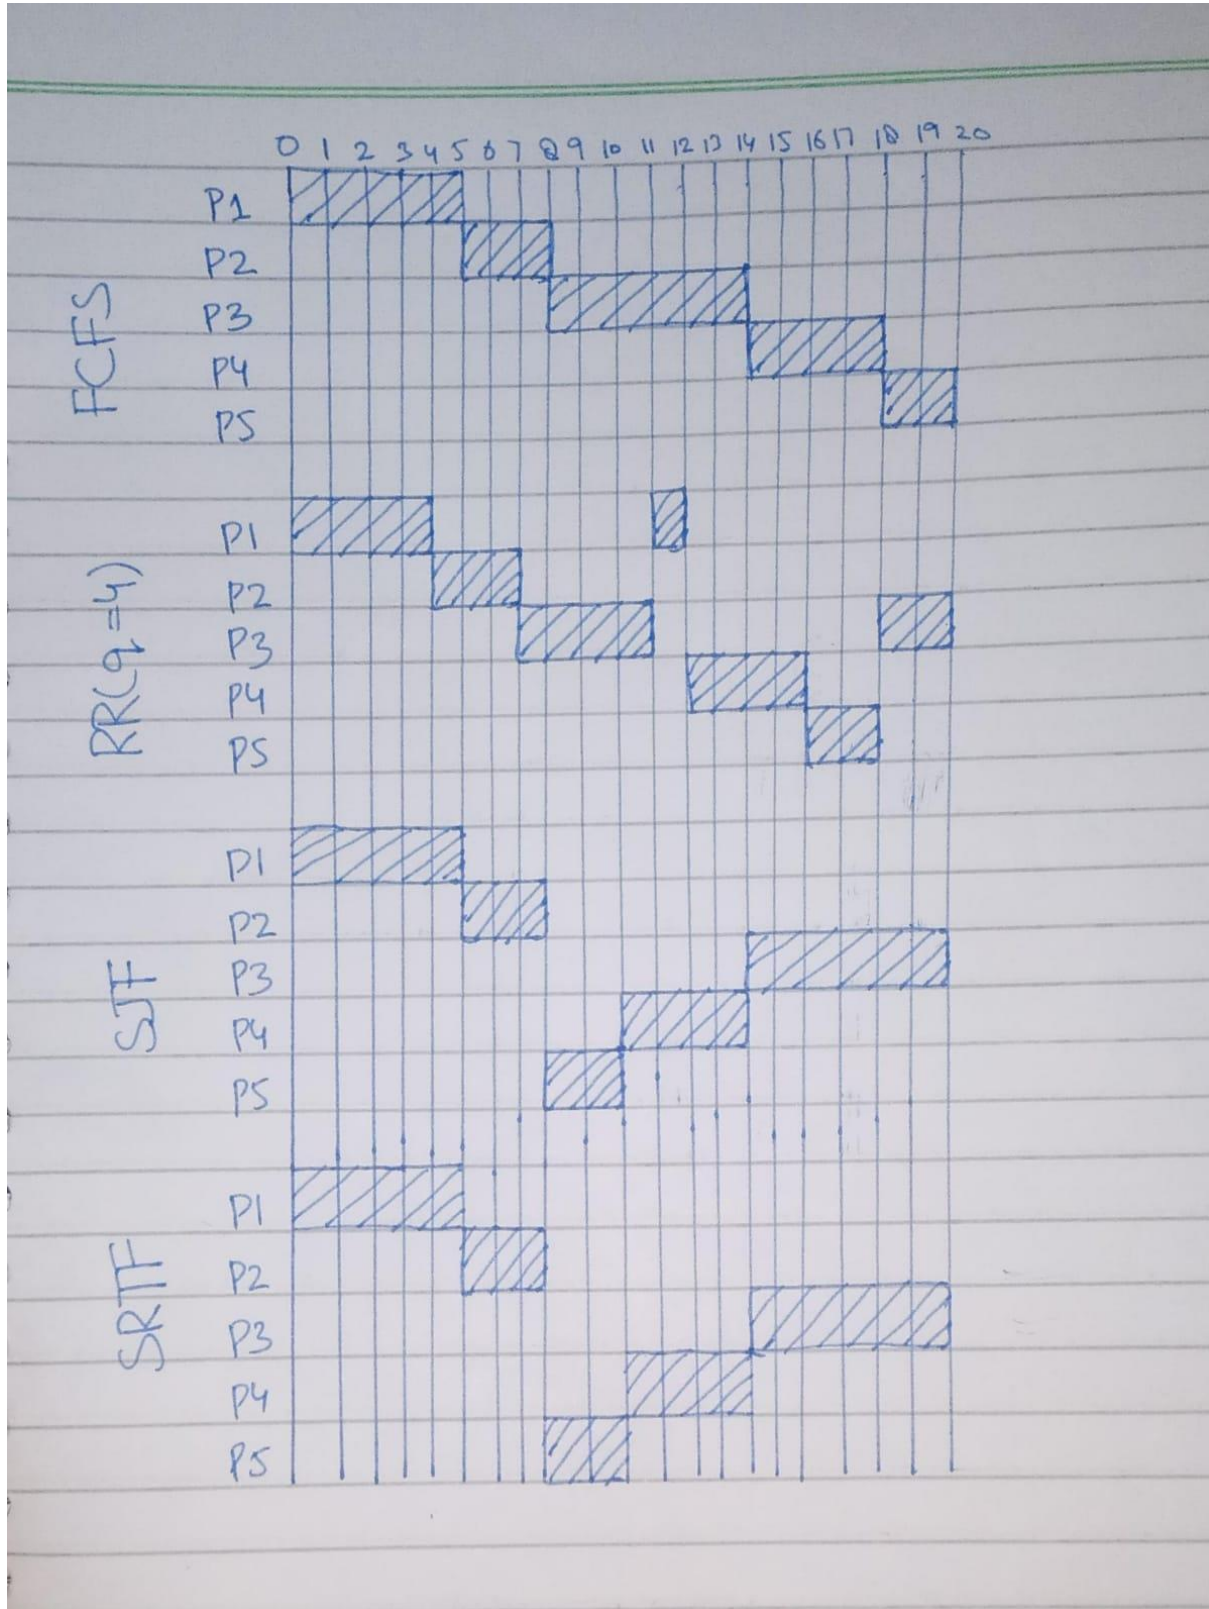 0 1 2 3 4 5 6 7 8 9 10 11 12 13 14 15 16 17 18 19 20
FCFS
P1
P2
P3
P4
P5
RR(q=4)
P1
P2
P3
P4
P5
SJF
P1
P2
P3
P4
P5
SRTF
P1
P2
P3
P4
P5